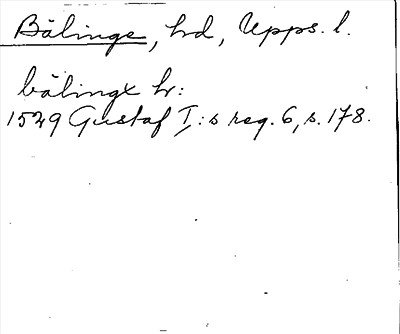 Bälinge, hd, Upps. l.
bälingx hr:
1529 Gustaf I:s reg. 6, s. 178.